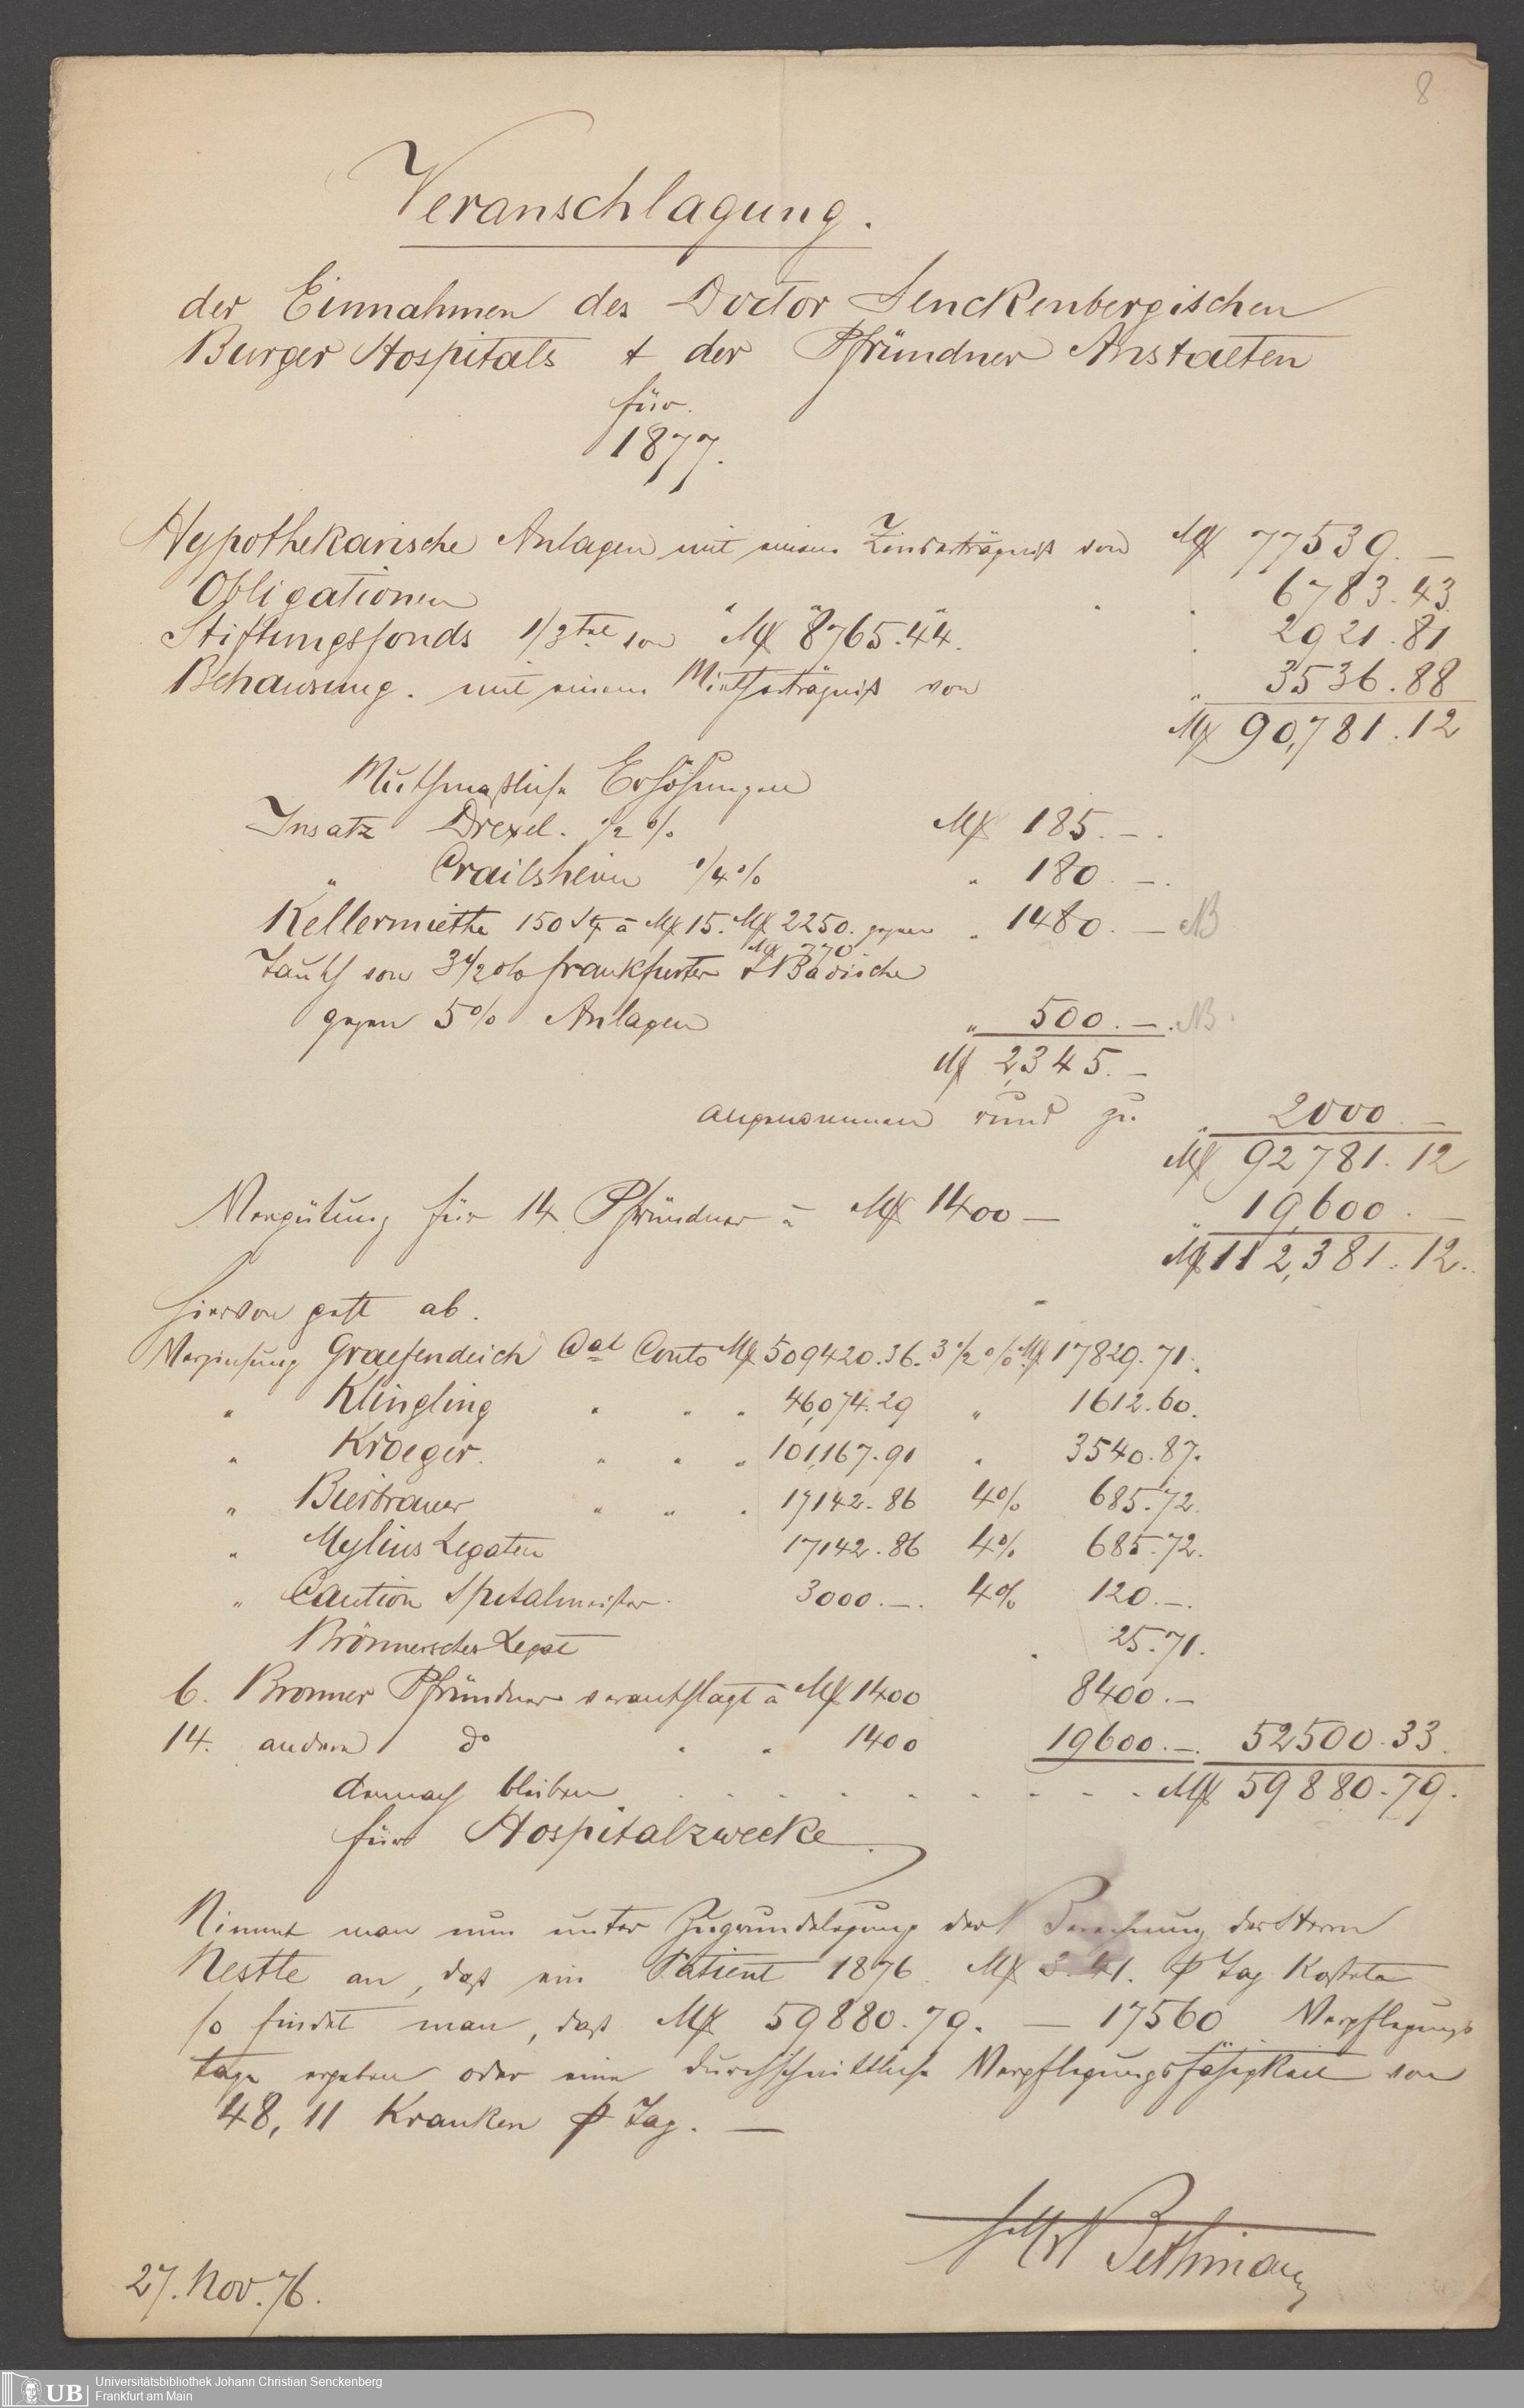 8
Veranschlagung.
der Einnahmen des Doctor Senckenbergischen
Burger Hospitals & der Pfründner Anstalten
für
1877.
Hypothekarische Anlagen mit einem Zinserträgniß von M 77539. —
Obligationen " " " " 6783.43
Stiftungsfonds 1/3tel von M 8765.44. " 2921.81
Behausung. mit einem Mietherträgniß von " 3536.88
M 90,781.12
Muthmaßliche Erhöhungen
Insatz Drexel. 1/2 % M 185. —.
" Crailsheim 1/4 % " 180. —.
Kellermiethe 150 Stf à M 15. M 2250. gegen " 1480. — NB
M 770
Tausch von 3 1/2 % frankfurter & Badische
gegen 5 % Anlagen " 500. —. NB.
M 2,345. —
angenommen rund zu " 2000. —
M 92781.12
Vergütung für 14 Pfründner à M 1400 — " 19,600. —
M 112,381.12.
hiervon geht ab.
Verzinsung Graefendeich Cal Conto M 509420.36. 3 1/2 % M 17829.71.
" Klingling " " " 46,074.29 " 1612.60.
" Kroeger. " " " 101,167.91 " 3540.87.
" Bierbrauer " " " 17142.86 4% 685.72.
" Mylius Legaten 17142.86 4% 685.72.
" Caution Spitalmeister. 3000. —. 4% 120. —.
Brönnersches Legat " 25.71.
6. Bronner Pfründner veranschlagt à M 1400 8400. —
14. andere do " " 1400 19600. —. 52500.33.
demnach bleiben . . . . . . . . . M 59880.79.
für Hospitalzwecke.
Nimmt man nun unter Zugrundelegung der Berechnung des Herrn
Nestle an, daß ein Patient 1876. M 3.41. p Tag kostete
so findet man, daß M 59880.79. — 17560 Verpflegungs
tage ergeben oder eine durchschnittliche Verpflegungsfähigkeit von
48,11 Kranken p Tag. —
Bethmann
27. Nov. 76.
UB Universitätsbibliothek Johann Christian Senckenberg
Frankfurt am Main